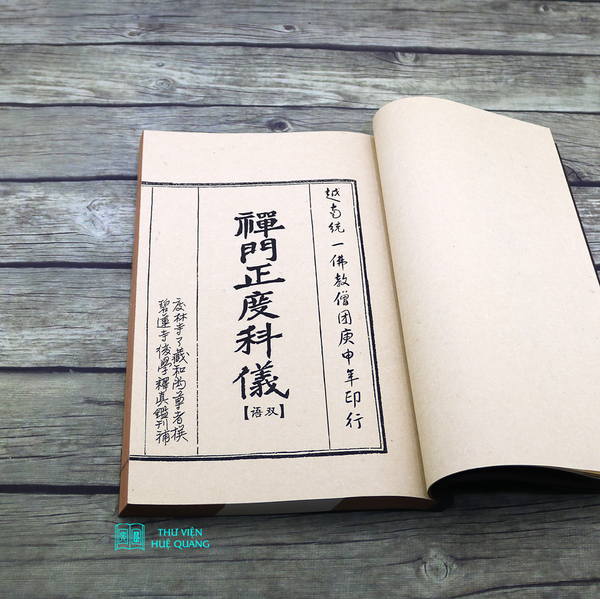 越南統一佛教僧团庚申年印行
禪門正度科儀
【双语】
林寺了藏和尚尊者撰
碧蓮寺後學釋真鑑刊補
THƯ VIỆN
HUỆ QUANG